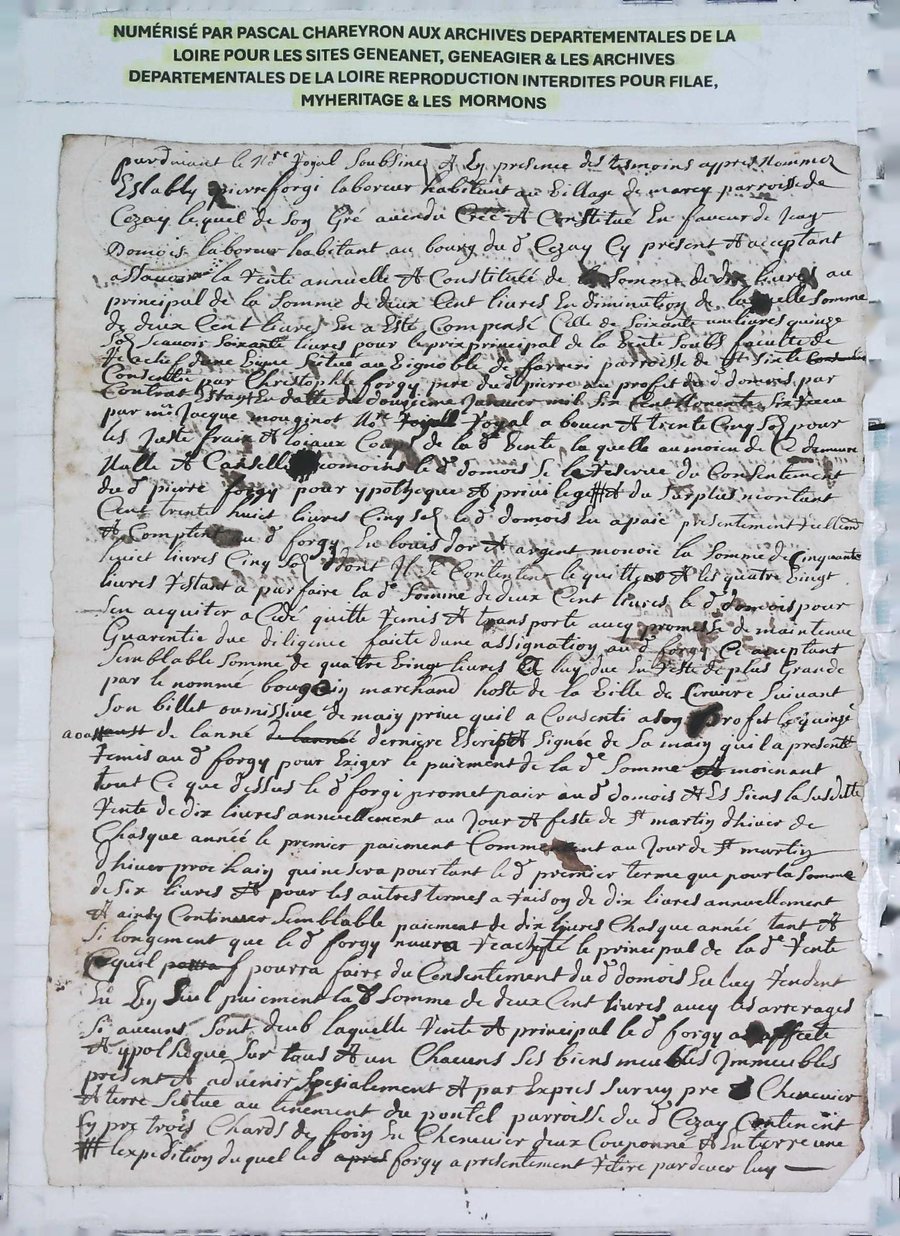 NUMÉRISÉ PAR PASCAL CHAREYRON AUX ARCHIVES DEPARTEMENTALES DE LA
LOIRE POUR LES SITES GENEANET, GENEAGIER & LES ARCHIVES
DEPARTEMENTALES DE LA LOIRE REPRODUCTION INTERDITES POUR FILAE,
MYHERITAGE & LES MORMONS
pardevant le Nre Royal soubsigne & En presence des tesmoins appres Nommez
Estably pierre forgi laboreur habitant au Village de marcy parroisse de
Cezay lequel de son Gré a vendu Creé & Constitué En faveur de Jean
Domois laboreur habitant au bourg du d Cezay Cy présent & acceptant
assavoir la Rente annuelle & Constituée de la Somme de dix livres au
principal de la Somme de deux Cent livres En diminution de laquelle Somme
de deux Cent livres En a Esté Compensé Celle de Soixante livres quinze
Sos Scavoir Soixante livres pour le prix principal de la Vente Soubs faculté de
Reachet d'une Vigne Scitue au Vignoble de parroisse de St Sixte
Consentie par Christophle forgy pere du d pierre au profit du d domois par
Contrat En datte du douzieme Janvier mil Six Cent nonente Six Receu
par me Jacque mouginot Nre Royal a bouen & trente Cinq Sos pour
les Juste fraix & loyaux Cous de la d Vente laquelle au moien de Ce demeure
Nulle & Cassée Neomoins le d domois Se la reserve du Consentement
du d pierre forgy pour ypotheque & privilege # & du Surplus montant
Cent trente huict livres Cinq Sos le d domois En a paié présentement
& Comptent au d forgy En louis d'or & argent monoie la Somme de Cinquante
huict livres Cinq Sos dont Il Se Contente le quitte & les quatre Vingt
livres Restant a parfaire la d Somme de deux Cent livres le d domois pour
Sen acquiter a Cédé quitté Remis & transporte avec promesse de maintenue
Guarentie due diligence faicte dune assignation au d forgy Ce acceptant
Semblable Somme de quatre Vingt livres a luy due En Reste de plus Grande
par le nommé marchand hoste de la Ville de Suivant
Son billet ou missive de main prive quil a Consenti a son profit le quinze
aoust de lanné de lanné derniere Escripte & Signée de Sa main qu'il a présente
Remis au d forgy pour Exiger le paiement de la d Somme & moienant
tout Ce que dessus le d forgi promet paier au d domois & Es Siens la Susdicte
Rente de dix livres annuellement au Jour & feste de St martin dhiver de
Chasque année le premier paiement Commencent au Jour de St martin
dhiver prochain qui ne Sera pourtant le d premier terme que pour la Somme
de Six livres & pour les autres termes a raison de dix livres annuellement
& ainsy Continuer Semblable paiement de dix livres Chasque année tant &
Si longement que le d forgy naura reachepté le principal de la d Rente
Ce quil pourra pourra faire du Consentement du d domois En luy Rendent
En Un Seul paiement la d Somme de deux Cent livres avec les arrerages
Si aucuns Sont deub laquelle Rente & principal le d forgy a affecte
& ypotheque Sur tous & un Chacuns Ses biens meubles Immeubles
présent & advenir Spesialement & par Expres Sur un pre Chenevier
& terre Scitue au tinement du pontel parroisse du d Cezay Contenent
Ly pre trois Chards de foin Le Chenevier deux Couponné & La terre une
# lexpedition du quel le d apres forgy a présentement retire par dever luy